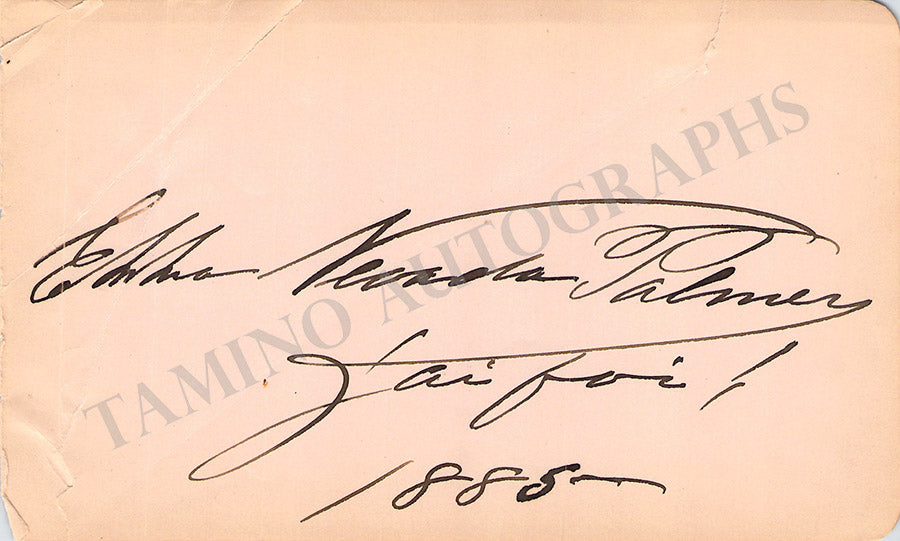 Emma Nevada Palmer
J'ai foi!
1885
TAMINO AUTOGRAPHS